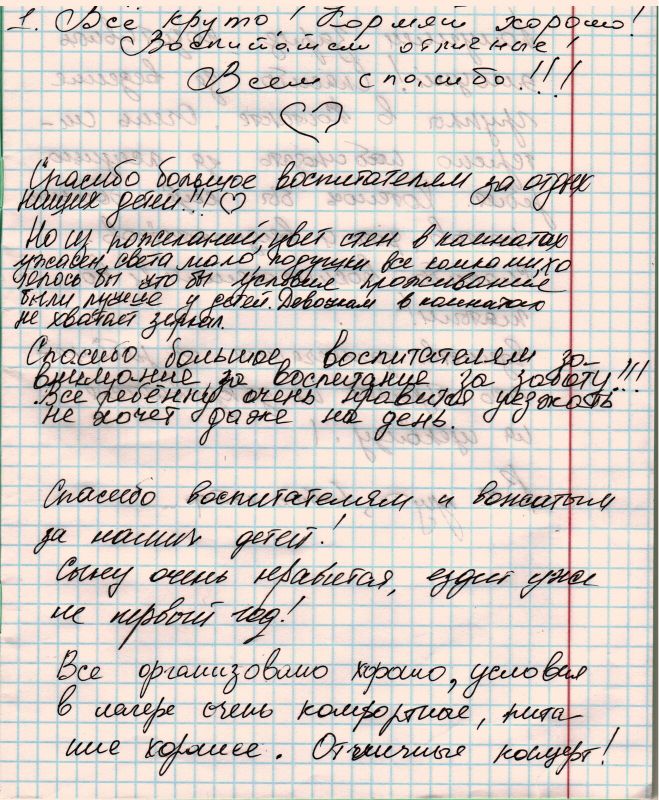 1. Всё круто! Кормят хорошо!
Воспитатели отличные!
Всем спасибо!!!
Спасибо большое воспитателям за отдых
наших детей!!! ♡
Но из пожеланий, цвет стен в комнатах
ужасен, света мало, подушки все комками, хо
телось бы что бы условия проживания
были лучше у детей. Девочкам в комнатах
не хватает зеркал.
Спасибо большое воспитателям за
внимание за воспитание за заботу!!!
Все ребёнку очень нравится уезжать
не хочет даже на день.
Спасибо воспитателям и вожатым
за наших детей!
Сыну очень нравится, ездит уже
не первый год!
Все организовано хорошо, условия
в лагере очень комфортные, пита
ние хорошее. Отличные концерт!